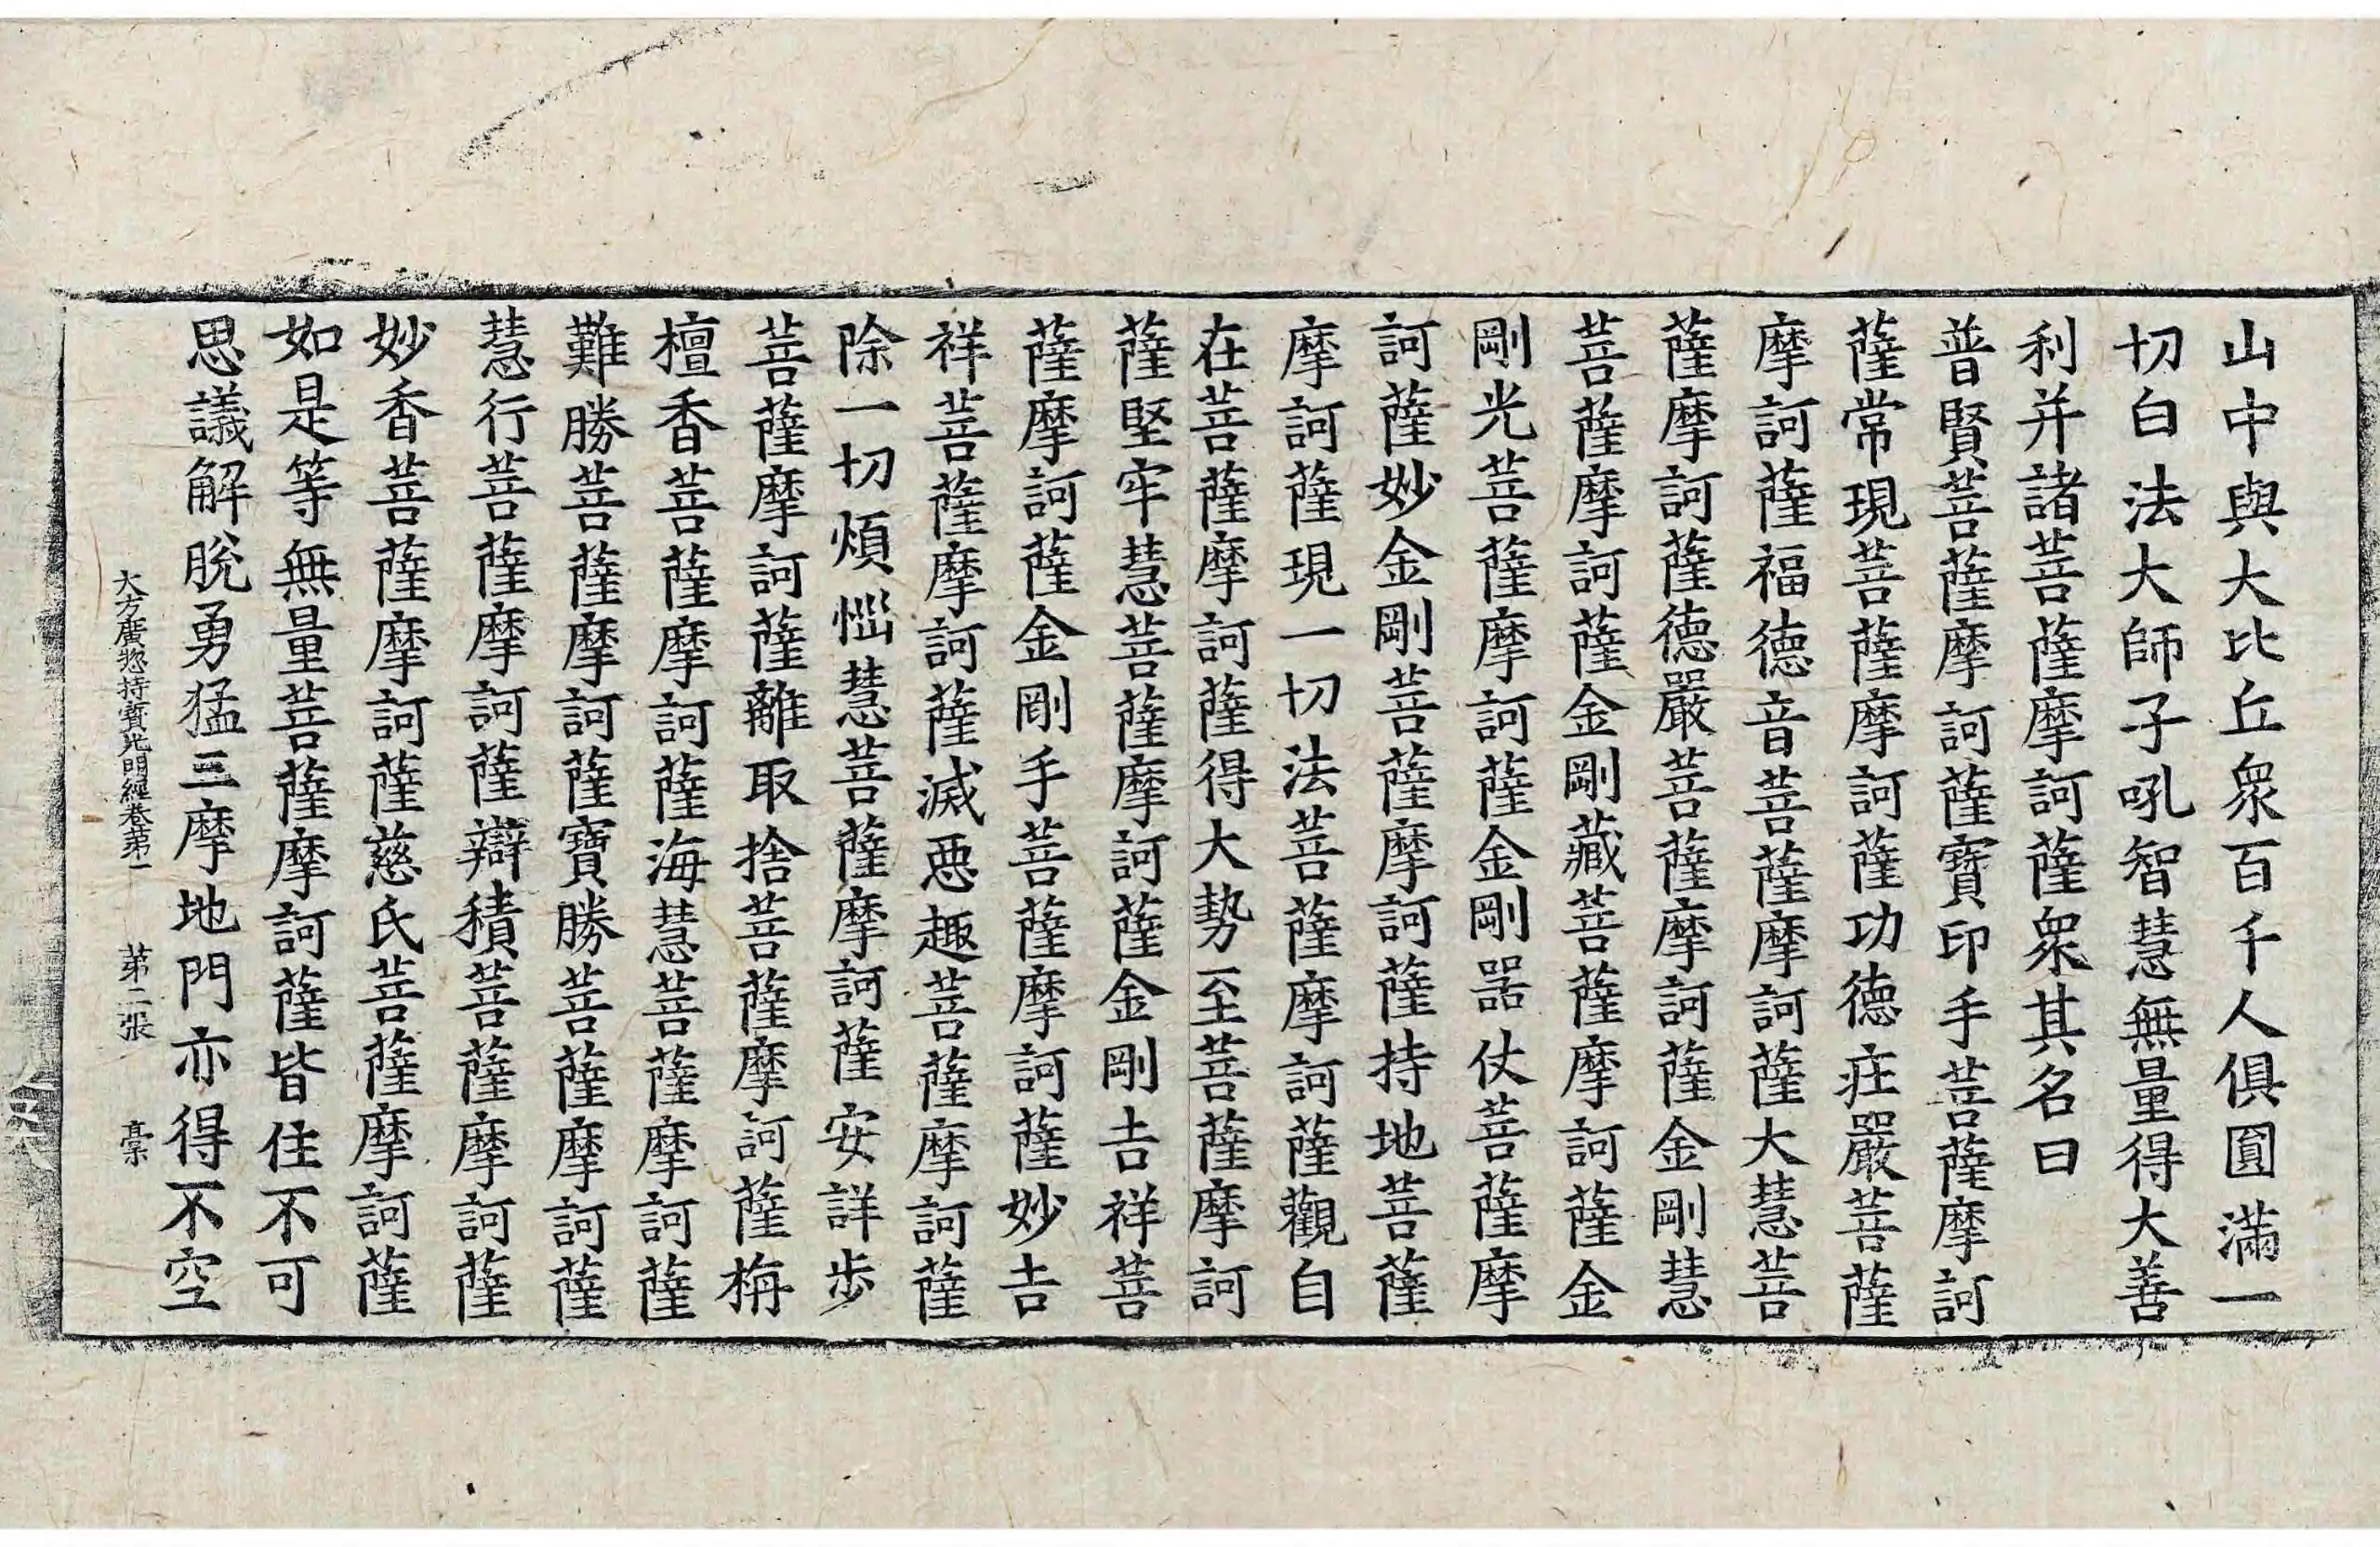 山中與大比丘衆百千人俱圓滿一
切白法大師子吼智慧無量得大善
利并諸菩薩摩訶薩衆其名曰
普賢菩薩摩訶薩寶印手菩薩摩訶
薩常現菩薩摩訶薩功德莊嚴菩薩
摩訶薩福德音菩薩摩訶薩大慧菩
薩摩訶薩德嚴菩薩摩訶薩金剛慧
菩薩摩訶薩金剛藏菩薩摩訶薩金
剛光菩薩摩訶薩金剛器仗菩薩摩
訶薩妙金剛菩薩摩訶薩持地菩薩
摩訶薩現一切法菩薩摩訶薩觀自
在菩薩摩訶薩得大勢至菩薩摩訶
薩堅牢慧菩薩摩訶薩金剛吉祥菩
薩摩訶薩金剛手菩薩摩訶薩妙吉
祥菩薩摩訶薩滅惡趣菩薩摩訶薩
除一切煩惱慧菩薩摩訶薩安詳步
菩薩摩訶薩離取捨菩薩摩訶薩栴
檀香菩薩摩訶薩海慧菩薩摩訶薩
難勝菩薩摩訶薩寶勝菩薩摩訶薩
慧行菩薩摩訶薩辯積菩薩摩訶薩
妙香菩薩摩訶薩慈氏菩薩摩訶薩
如是等無量菩薩摩訶薩皆住不可
思議解脫勇猛三摩地門亦得不空
大方廣惣持寶光明經卷第一 第二張 槀